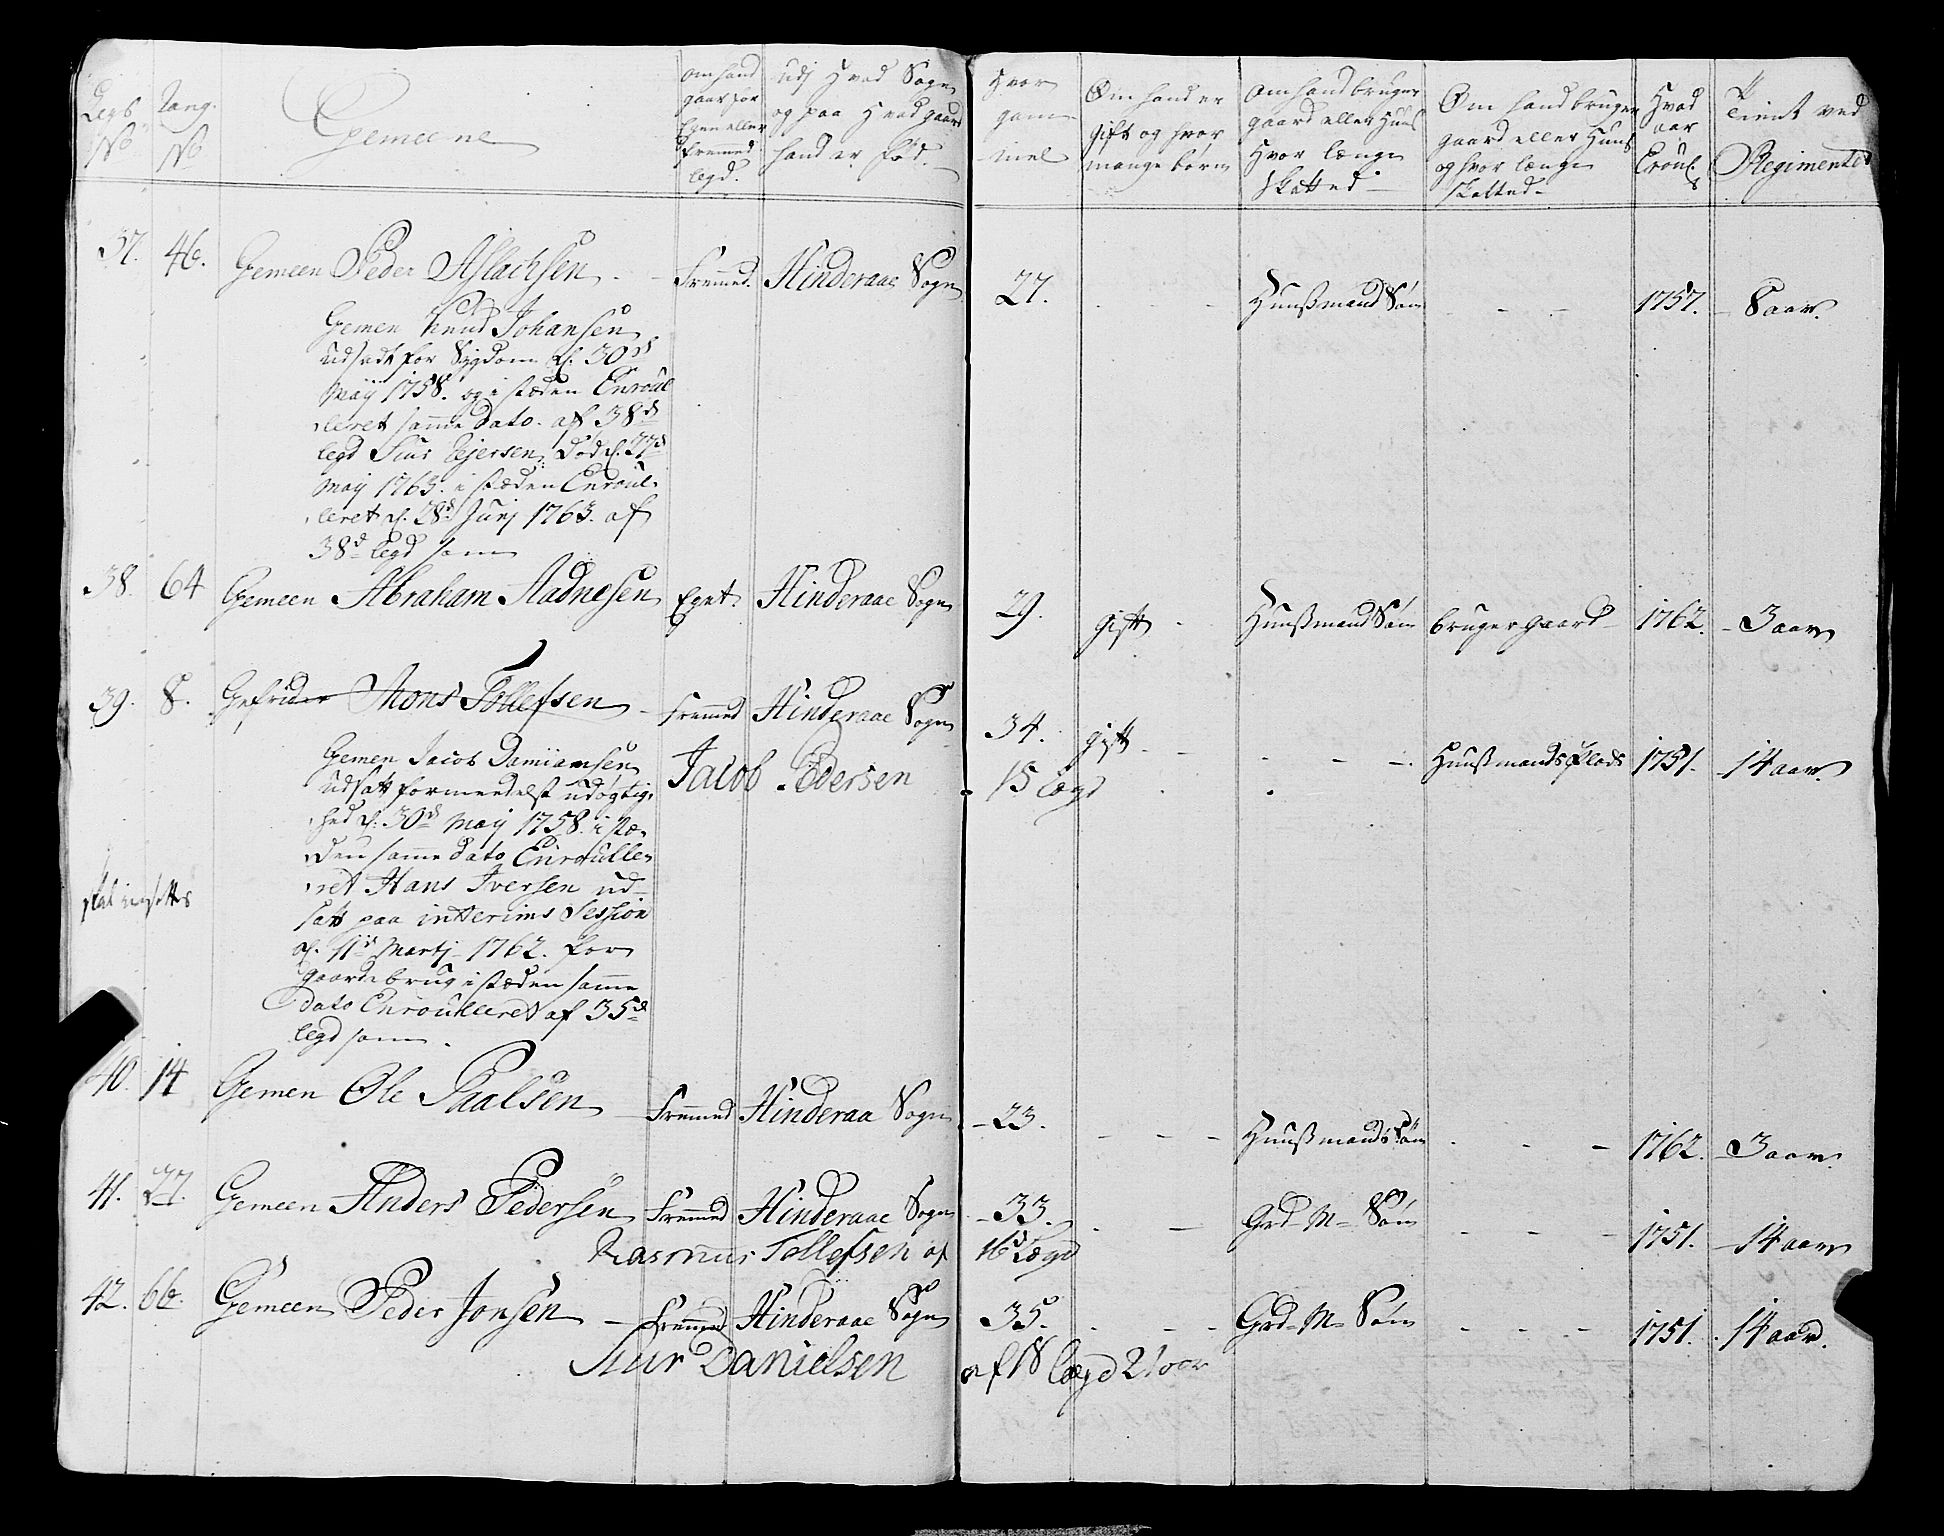 Legds No
Rang. No
Gemeene
om hand gaar for Egen eller fremmed legd.
udj Hvad Sogn og paa Hvad gaard hand er fød.
Hvor gam- mel
Om hand er gift og hvor mange børn
om hand bruger gaard eller Huus Hvor længe skatted
Om hand bruger gaard eller Huus og hvor længe skatted
Hvad aar Enroul.
Tient ved Regimentet
37. 46. Gemeen Peder Aslachsen fremmed. Hinderaae Sogn 27. Huusmand Søn 1757. 8 aar.
Gemen Knud Johansen
udsadt for Sygdom d. 30d
Maij 1758. og i stæden Enroul
leret samme dato. af 38d
legd Siur Ejersen, død d. 27d
Maij 1763. i stæden Enroul-
leret d. 28d Junj 1763. af
38d legd som
38. 64 Gemeen Abraham Aadnesen Eget Hinderaae Sogn 29. gift Huusmand Søn bruger gaard 1762. 3 aar
39. 8. Gefrider Mons Tollefsen fremmed Hinderaae Sogn 34. gift Huusmands Plads 1751. 14 aar.
Jacob Pedersen 15 Lægd
Gemen Jacob Damiamsen
udsatt formedelst udøgtig-
hed d. 30d Maij 1758. i stæ-
den samme dato Enroulle-
ret Hans Iversen ud-
satt paa interims Session
d. 11d Martj 1762. for
gaards brug i stæden samme
dato Enroulleret af 35d
legd som.
skal
40. 14 Gemen Ole Paalsen fremmed Hinderaa Sogn 23. Huusmands Søn 1762. 3 aar.
41. 27. Gemeen Anders Pedersen fremmed Hinderaae Sogn 33. Grd-M- Søn 1751. 14 aar
Rasmus Tollefsen af 16d Lægd
42. 66. Gemeen Peder Jonsen fremmed Hinderaae Sogn 35. Grd-M- Søn 1751. 14 aar.
Siur Danielsen af 18 Lægd 21 aar